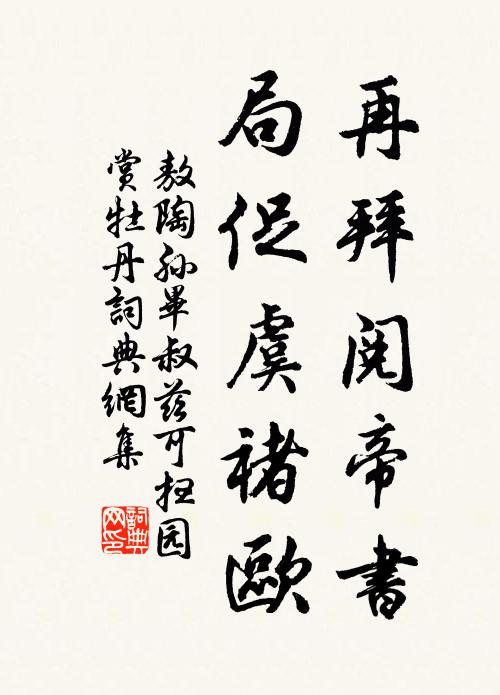 再拜閲帝書
局促虞褚歐
敖陶孙畢叔茲可抂园
賞牡丹詞典網集
詞典
网印